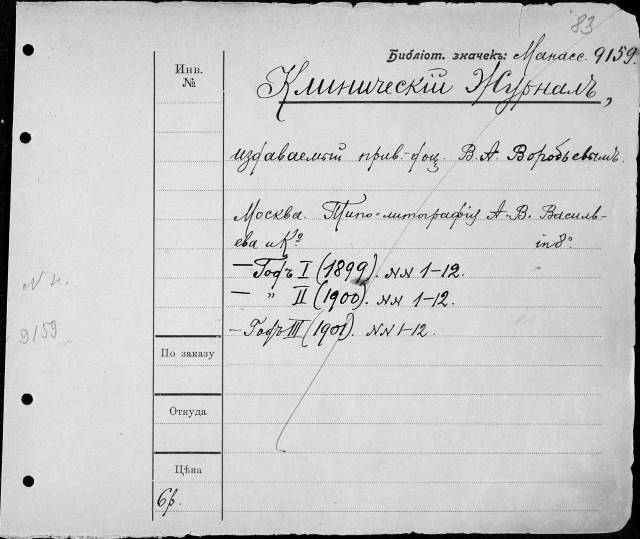 83
Библіот. значекъ: Манасс. 9159.
Инв.
№
Клиническій Журналъ,
издаваемый прив.-доц. В. А. Воробьевымъ.
Москва. Типо-литографія А. В. Василь-
ева и Кº in 8º.
— Годъ I (1899). NN 1–12.
— „ II (1900). NN 1–12.
— Годъ III (1901). NN 1–12.
N 4.
9159
По заказу
Откуда
Цѣна
6р.